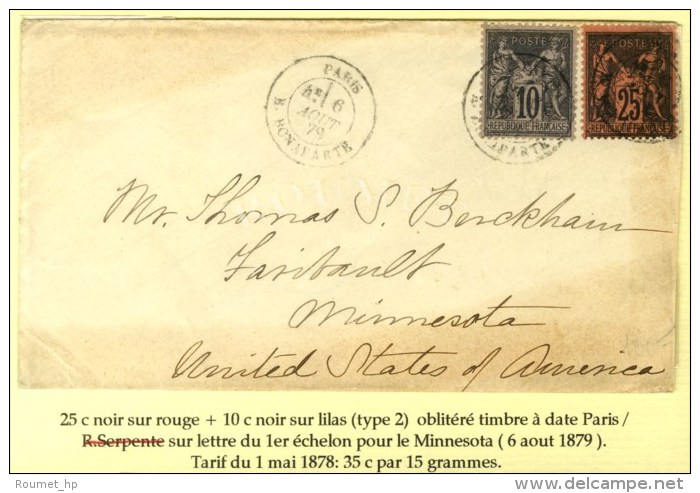 PARIS
4E 6
AOUT
79
R. BONAPARTE
POSTE
10
REPUBLIQUE FRANÇAISE
POSTE
25
REPUBLIQUE FRANÇAISE
Mr. Thomas S. Berckham
Faribault
Minnesota
United States of America
25 c noir sur rouge + 10 c noir sur lilas (type 2) oblitéré timbre à date Paris /
R.Serpente sur lettre du 1er échelon pour le Minnesota ( 6 aout 1879 ).
Tarif du 1 mai 1878: 35 c par 15 grammes.
Roumet_hp
delcampe.net